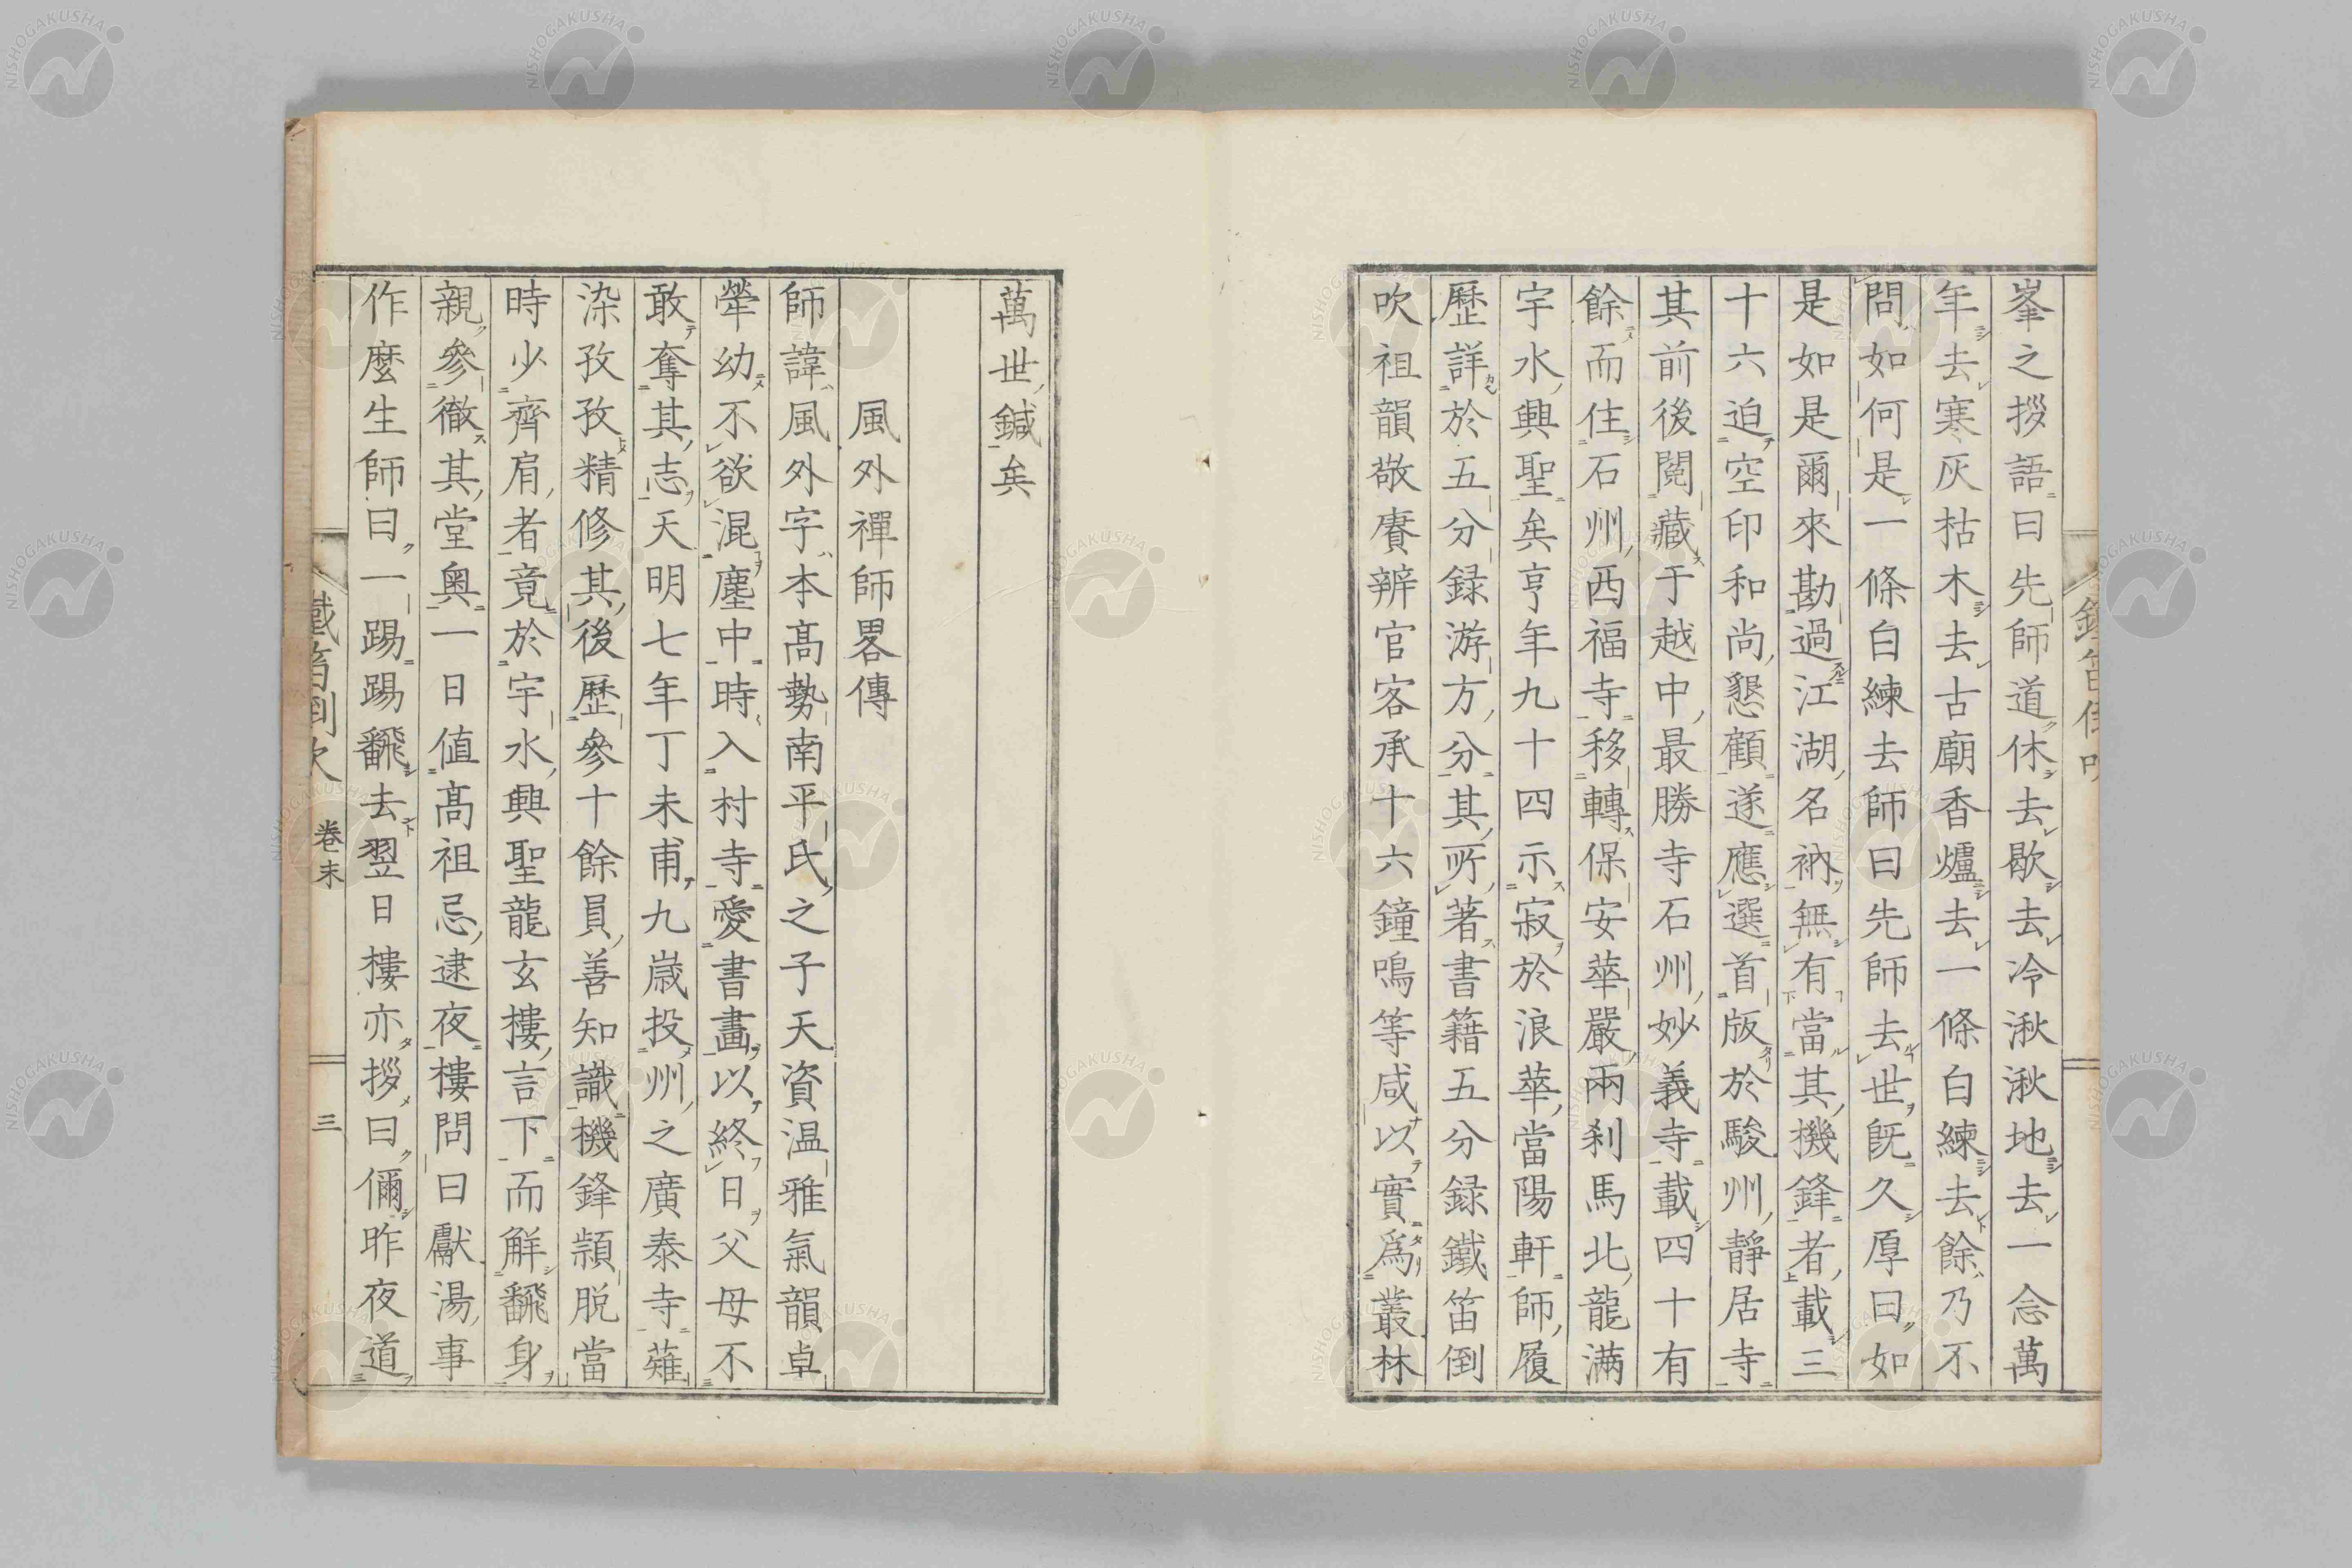 峯之拶語曰先師道休去歇去冷湫湫地去一念萬
年去寒灰枯木去古廟香爐去一條白練去餘乃不
問如何是一條白練去師曰先師去世既久厚曰如
是如是爾來勘過江湖名衲無有當其機鋒者載三
十六迫空印和尚懇顧遂應選首版於駿州靜居寺
其前後閲藏于越中最勝寺石州妙義寺載四十有
餘而住石州西福寺移轉保安華嚴兩刹馬北龍満
宇水興聖矣亨年九十四示寂於浪華當陽軒師履
歷詳於五分録游方分其所著書籍五分録鐵笛倒
吹祖韻敬賡辨官客承十六鐘鳴等咸以實爲叢林
萬世鍼矣
風外禪師畧傳
師諱風外字本高勢南平氏之子天資温雅氣韻卓
犖幼不欲混塵中時入村寺愛書畫以終日父母不
敢奪其志天明七年丁未甫九歳投州之廣泰寺薙
染孜孜精修其後歷參十餘員善知識機鋒頴脱當
時少齊肩者竟於宇水興聖龍玄樓言下而解飜身
親參徹其堂奥一日値高祖忌逮夜樓問曰獻湯事
作麼生師曰一踢踢飜去翌日樓亦拶曰儞昨夜道
鐵笛倒吹 卷末 三